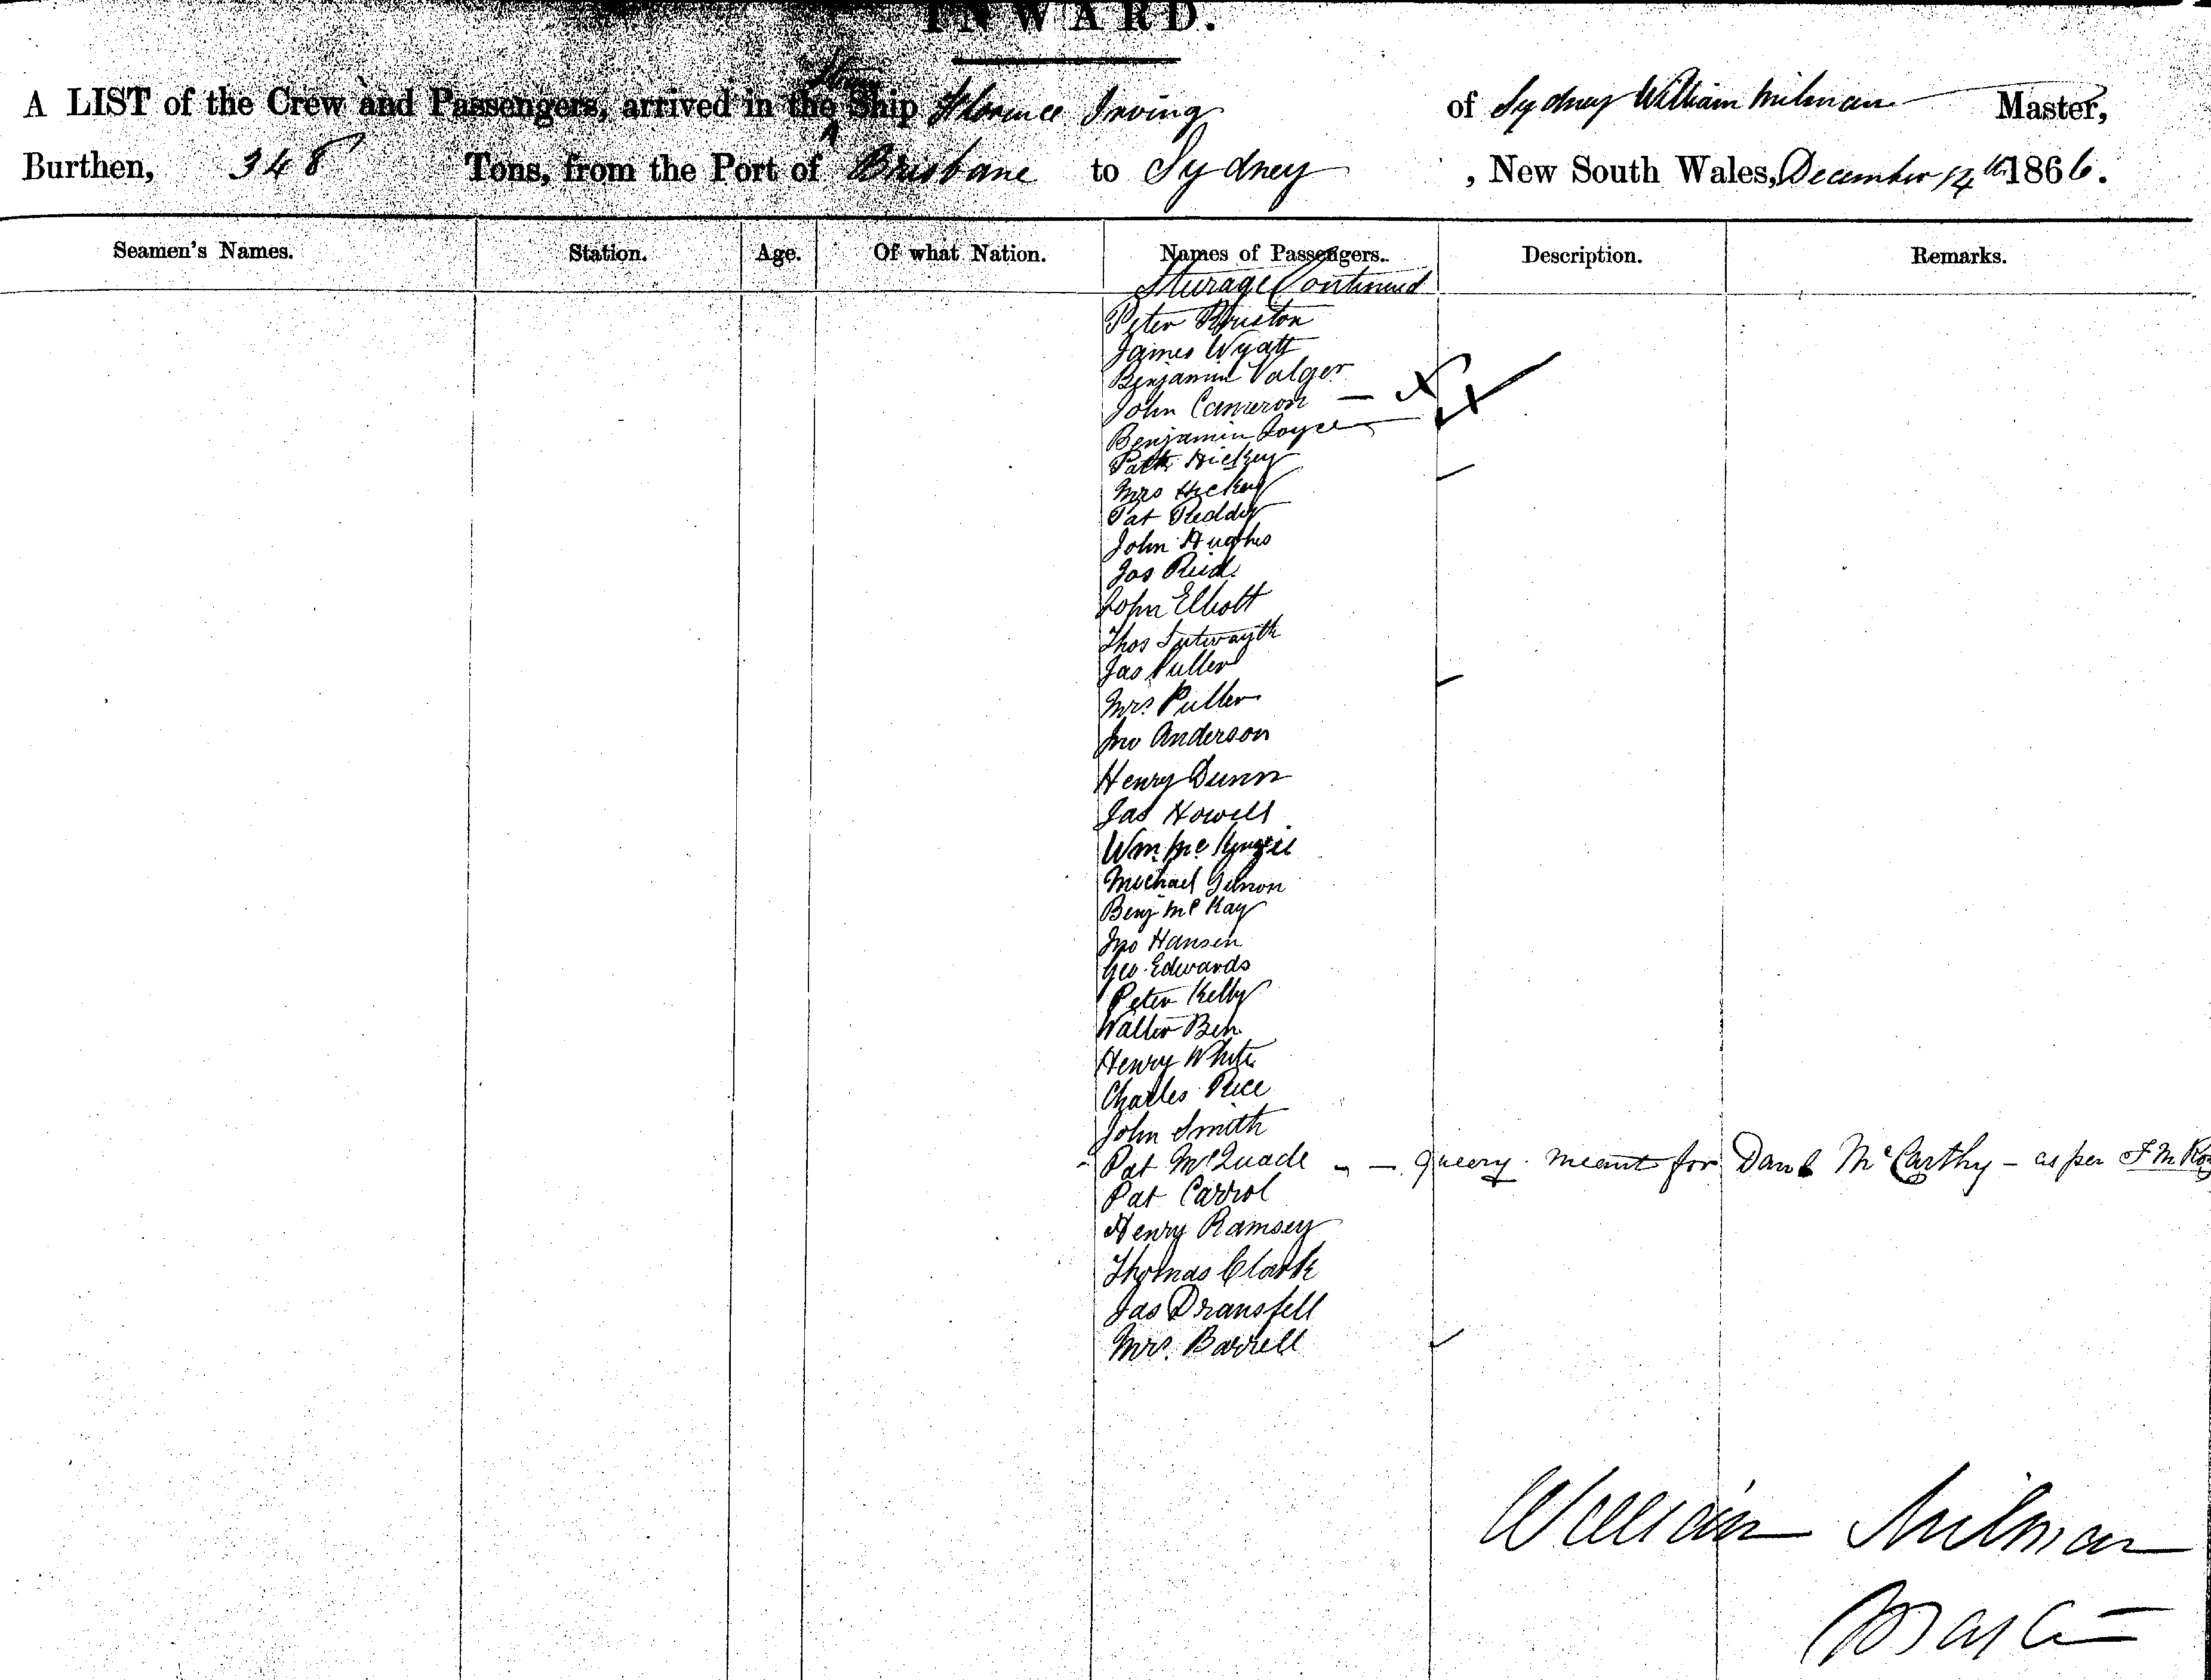 INWARD.
A LIST of the Crew and Passengers, arrived in the Ship Florence Irving of Sydney William Milman Master,
Burthen, 348 Tons, from the Port of Brisbane to Sydney, New South Wales, December 14th 1866.
Seamen's Names. Station. Age. Of what Nation. Names of Passengers. Description. Remarks.
Sturage Continued
Peter
James Wyatt
Benjamin Valger
John Cameron —
Benjamin Joyce
Patk Hickey
Mrs Hickey
Pat Reddy
John Hughes
Jas Reid
John Elliott
Thos
Jas Puller
Mrs. Puller
Jno Anderson
Henry Dunn
Jas Howell
Wm. Mc
Michael
Benj McKay
Jno Hansen
Geo. Edwards
Peter Kelly
Walter Ben
Henry White
Charles Rice
John Smith
Pat McQuade - — Query. meant for Danl McCarthy — as per F M
Pat Carrol
Henry Ramsey
Thomas Clark
Jas Dransfell
Mrs. Barrell
William Milman
Master